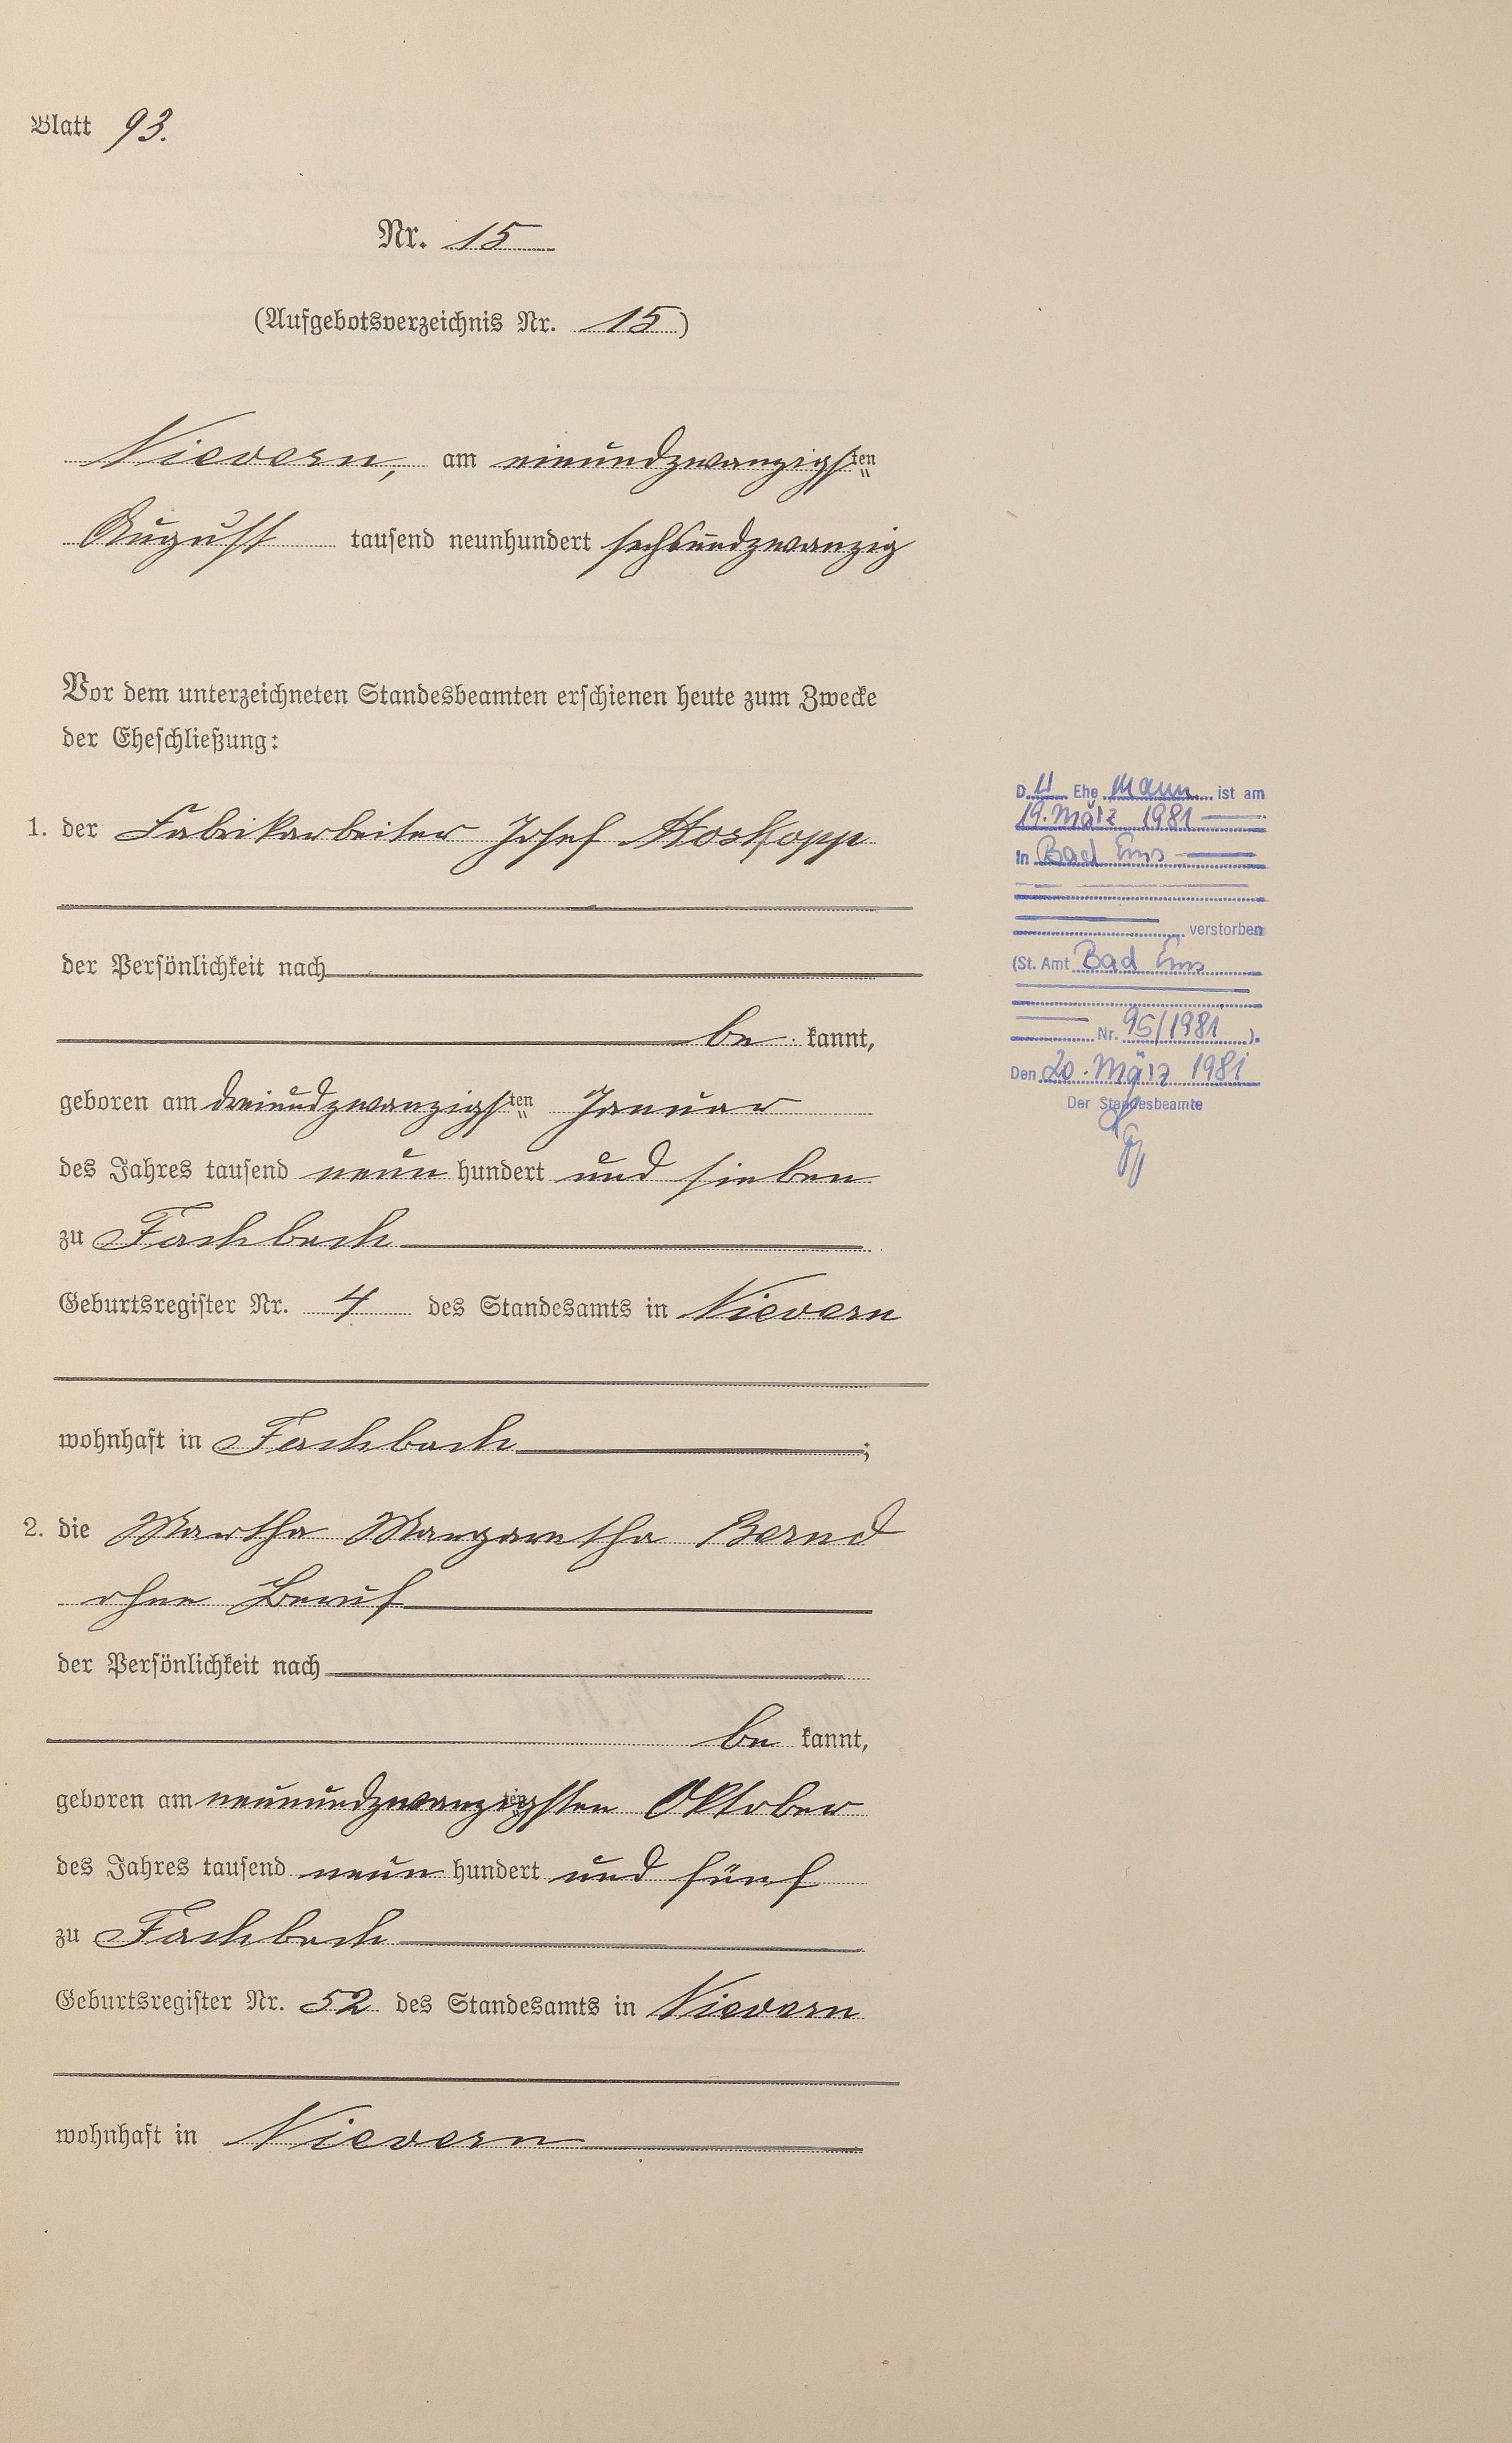 Blatt 93.
Nr. 15
(Aufgebotsverzeichnis Nr. 15)
Nievern, am einundzwanzigsten
August tausend neunhundert sechsundzwanzig
Vor dem unterzeichneten Standesbeamten erschienen heute zum Zwecke
der Eheschließung:
1. der Fabrikarbeiter Josef Hoskopp
der Persönlichkeit nach
be kannt,
geboren am dreiundzwanzigsten Januar
des Jahres tausend neun hundert und sieben
zu Fachbach
Geburtsregister Nr. 4 des Standesamts in Nievern
wohnhaft in Fachbach;
2. die Martha Margaretha Bernd
ohne Beruf
der Persönlichkeit nach
be kannt,
geboren am neunundzwanzigsten Oktober
des Jahres tausend neun hundert und fünf
zu Fachbach
Geburtsregister Nr. 52 des Standesamts in Nievern
wohnhaft in Nievern
Der Ehe Mann ist am
19. März 1981
in Bad Ems
verstorben
(St. Amt Bad Ems
Nr. 95/1981).
Den 20. März 1981
Der Standesbeamte